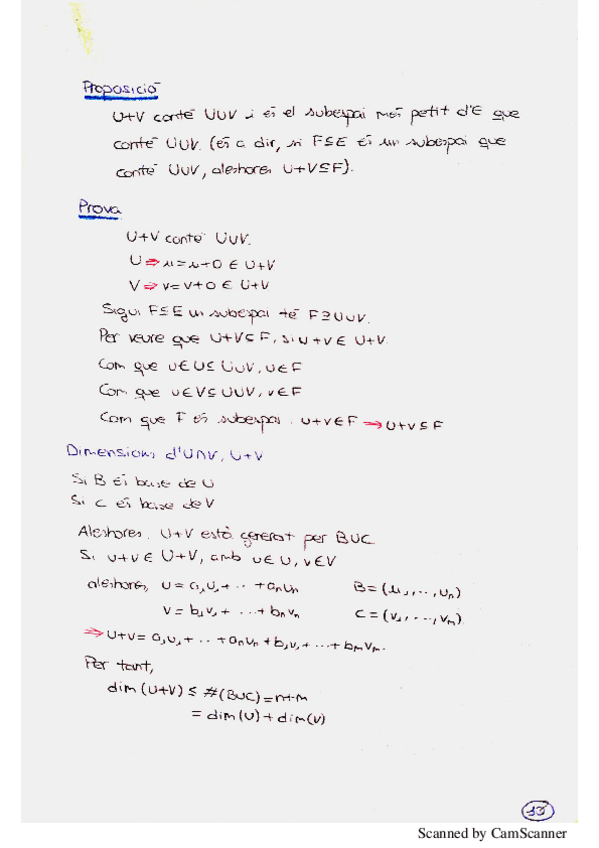 Proposició
U+V conté U∪V i és el subespai més petit d'E que
conté U∪V. (és a dir, si F⊆E és un subespai que
conté U∪V, aleshores U+V⊆F).
Prova
U+V conté U∪V.
U ⇒ u=u+0 ∈ U+V
V ⇒ v=v+0 ∈ U+V
Sigui F⊆E un subespai té F⊇U∪V.
Per veure que U+V⊆F, si u+v∈ U+V.
Com que u∈U⊆ U∪V, u∈F
Com que v∈V⊆U∪V, v∈F
Com que F és subespai. u+v∈F ⇒ U+V⊆F
Dimensions d'U∩V, U+V
Si B és base de U
Si C és base de V
Aleshores, U+V està generat per B∪C
Si u+v∈ U+V, amb u∈U, v∈V
aleshores, u = a₁u₁+ ·· +aₙuₙ B=(u₁,··,uₙ)
v= b₁v₁+ ··+bₙvₙ C=(v₁,··,vₘ).
⇒ u+v= a₁u₁+ ·· +aₙuₙ+b₁v₁+··+bₘvₘ.
Per tant,
dim (U+V) ≤ #(B∪C)=n+m
= dim(U)+dim(V)
13
Scanned by CamScanner